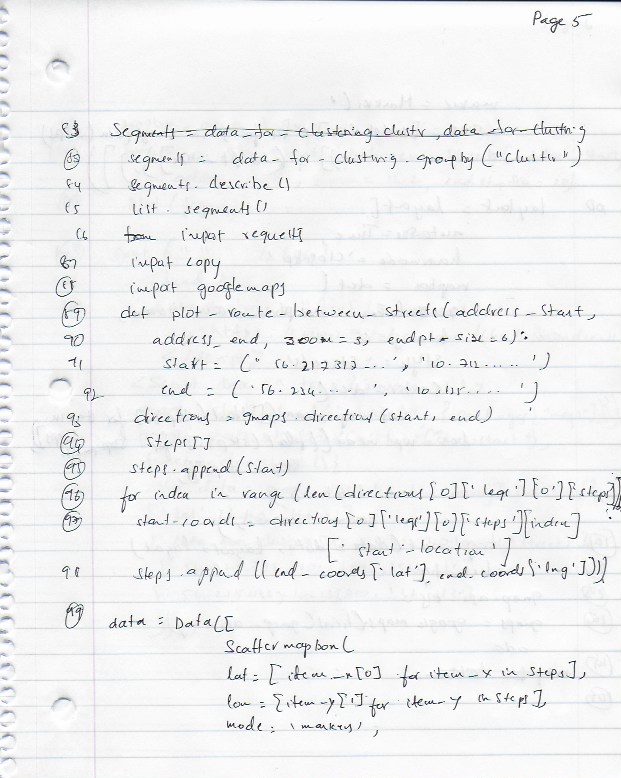 Page 5
83 Segments = data_for_clustering.clustr, data_for_clustrig
83 segments = data-for-clustering.groupby("Cluster")
84 segments.describe()
85 list.segments()
86 from import requests
87 import copy
88 import googlemaps
89 def plot-route-between-streets(address-start,
90 address_end, zoom=3, endpt-size=6):
91 start = ("56.217313...", '10.712.....')
92 end = ('56.234.....', '10.115.....')
93 directions = gmaps.directions(start, end)
94 steps[]
95 steps.append(start)
96 for index in range (len(directions[0]['legs'][0']['steps])):
97 start-coords = directions[0]['legs'][0]['steps'][index]
['start-location']
98 steps.append((end-coords['lat'], end-coords['lng']))
99 data = Data([
Scattermapbox(
lat = [item_x[0] for item_x in steps],
lon = [item-y[1] for item-y in steps],
mode: 'markers',